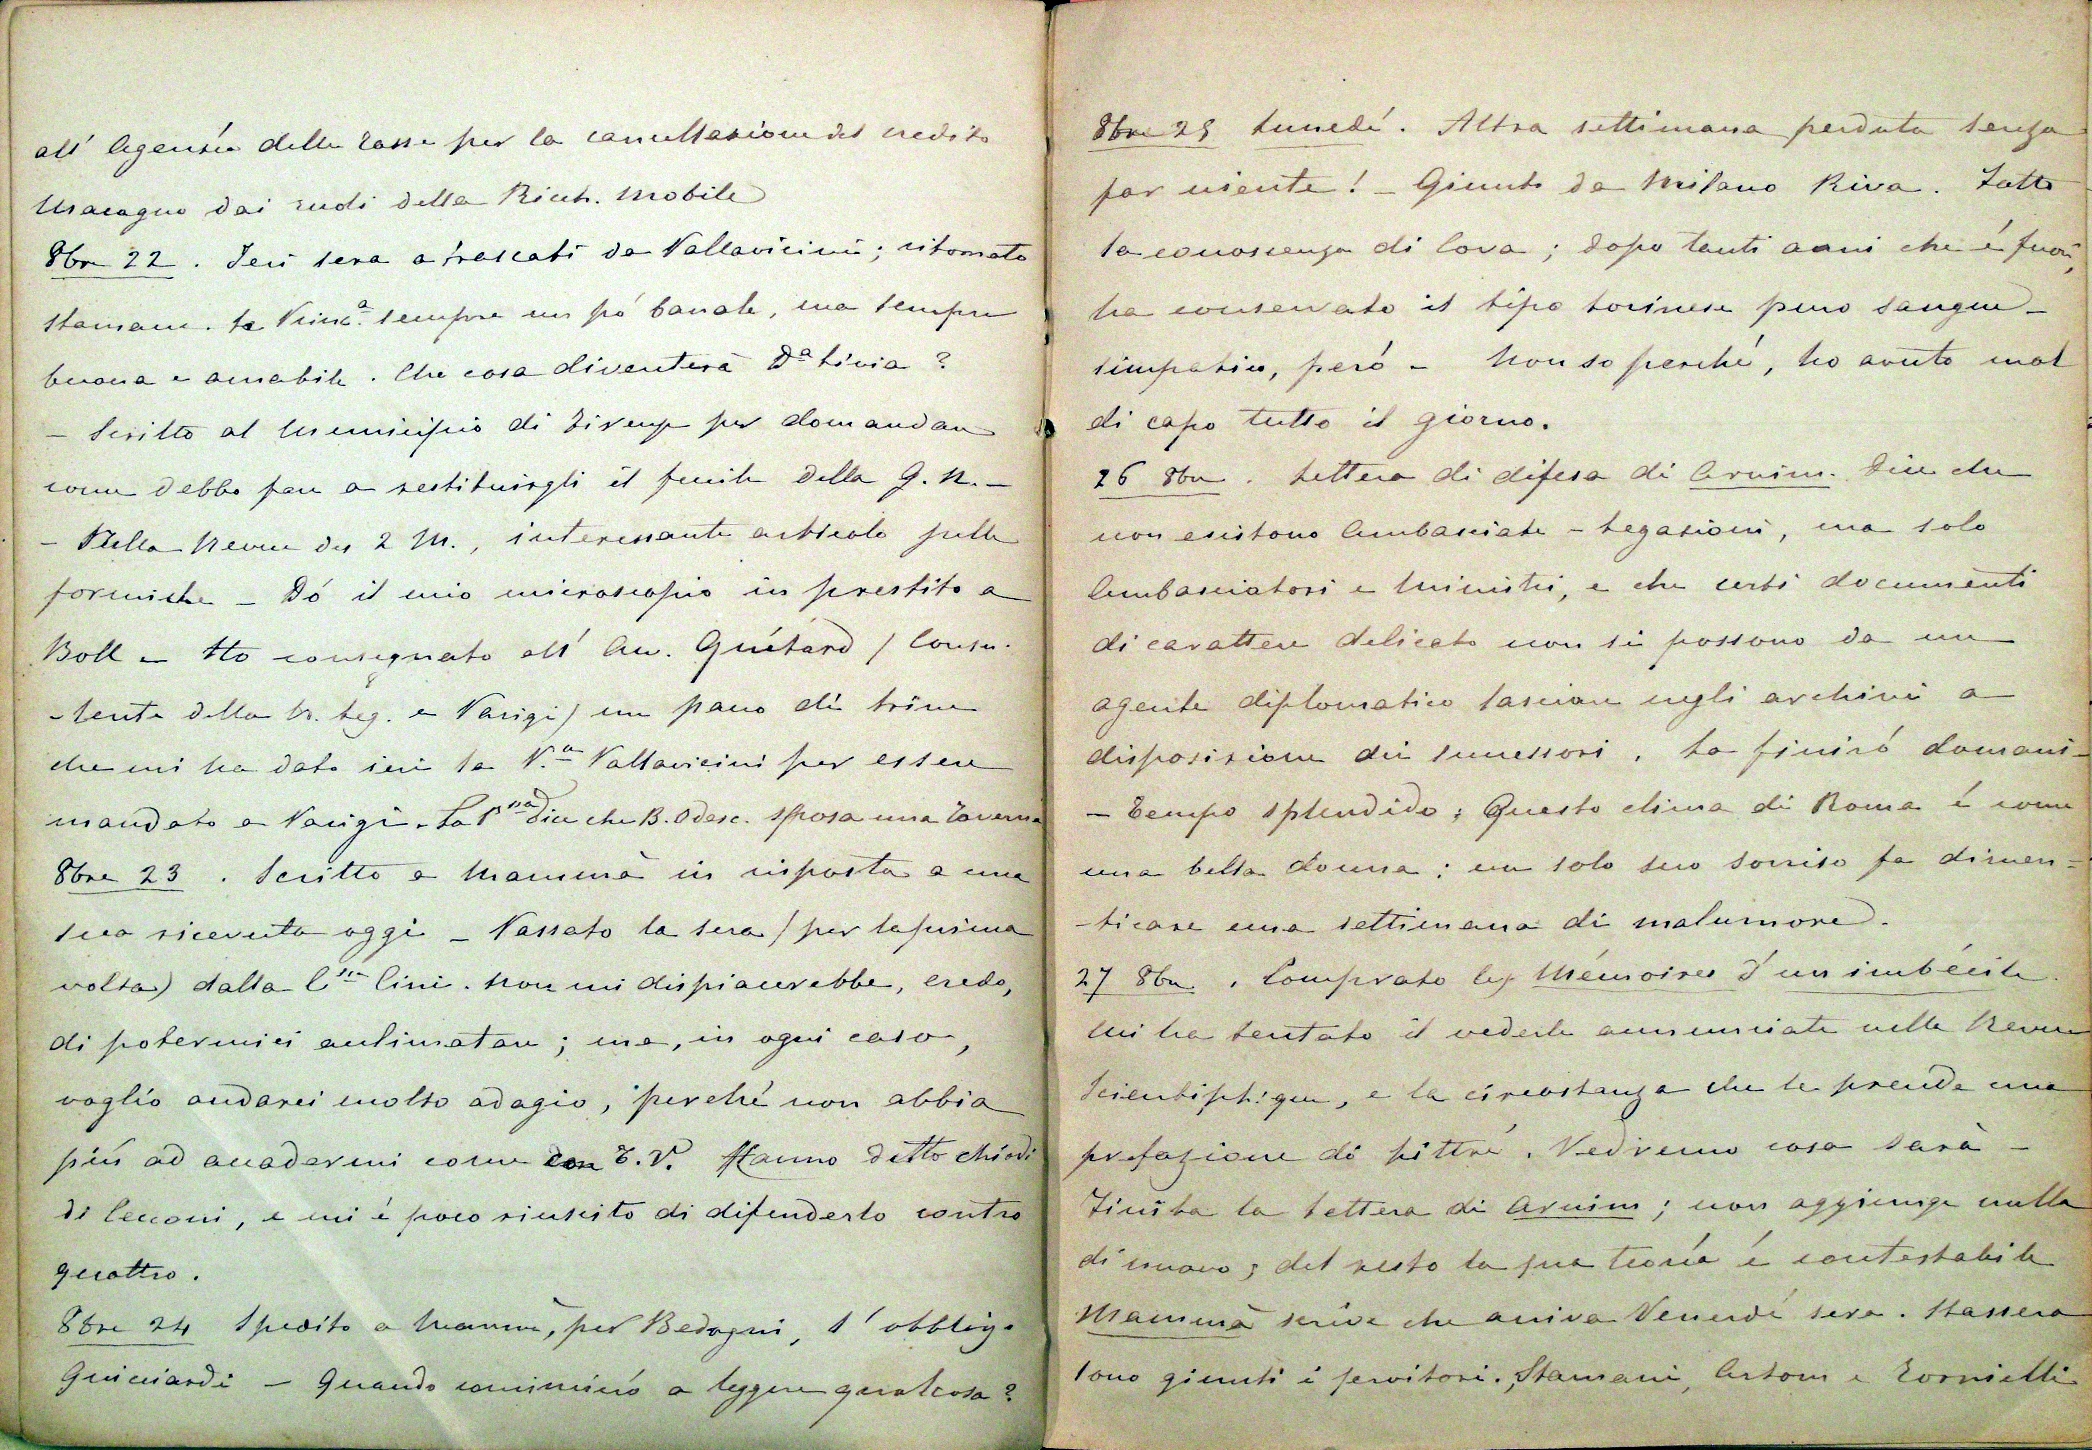 all' Agenzia delle Tasse per la cancellazione del credito
Macagno dai ruoli della Ricch. Mobile
8bre 22. Ieri sera a Frascati da Pallavicini; ritornato
stamane. La Princ.a sempre un pó banale, ma sempre
buona e amabile. Che cosa diventerà Da Livia?
- Scritto al Municipio di Firenze per domandare
come debbo fare a restituirgli il fucile della G. N. -
- Nella Revue des 2 M., interessante articolo sulle
formiche - Dó il mio microscopio in prestito a
Boll - Ho consegnato all' Avv. Guétard (Consu-
-lente della N. Leg. a Parigi) un pacco di trine
che mi ha dato ieri la P.a Pallavicini per essere
mandato a Parigi. La P.ssa dice che B. Odesc. sposa una Taverna
8bre 23. Scritto a Mammà in risposta a una
sua ricevuta oggi - Passato la sera (per la prima
volta) dalla C.ssa Cini. Non mi dispiacerebbe, credo,
di potermici acclimatare; ma, in ogni caso,
voglio andarci molto adagio, perché non abbia
piú ad accadermi come con E. P. Hanno detto chiodi
di Cecconi, e mi é poco riuscito di difenderlo contro
quattro.
8bre 24 Spedito a Mammà, per Bedogni, l' obbligo
Guicciardi - Quando comincieró a leggere qualcosa?
8bre 25 Lunedí. Altra settimana perduta senza
far niente! - Giunto da Milano Riva. Fatto
la conoscenza di Cova; dopo tanti anni che é fuori,
ha conservato il tipo torinese puro sangue -
simpatico, peró - Non so perché, ho avuto mal
di capo tutto il giorno.
26 8bre. Lettera di difesa di Arnim. Dice che
non esistono Ambasciate - Legazioni, ma solo
Ambasciatori e Ministri, e che certi documenti
di carattere delicato non si possono da un
agente diplomatico lasciare negli archivi a
disposizione dei successori. La finiró domani -
- Tempo splendido; Questo clima di Roma é come
una bella donna; un solo suo sorriso fa dimen=
-ticare una settimana di malumore.
27 8bre. Comprato les Mémoires d'un imbécile.
Mi ha tentato il vederle annunciate nella Revue
Scientiphique, e la circostanza che le precede una
prefazione di Littré. Vedremo cosa sarà -
Finita la lettera di Arnim; non aggiunge nulla
di nuovo; del resto la sua teoría é contestabile
Mammà scrive che arriva Venerdí sera. Stassera
sono giunti i servitori. Stamani, Artom e Tornielli